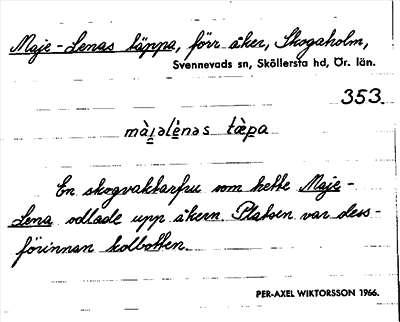 Maje-Lenas täppa, förr åker, Skogaholm,
Svennevads sn, Sköllersta hd, Ör. län.
353.
màjəlènəs tæpa
En skogvaktarfru som hette Maje-
Lena odlade upp åkern. Platsen var dess-
förinnan kolbotten.
PER-AXEL WIKTORSSON 1966.